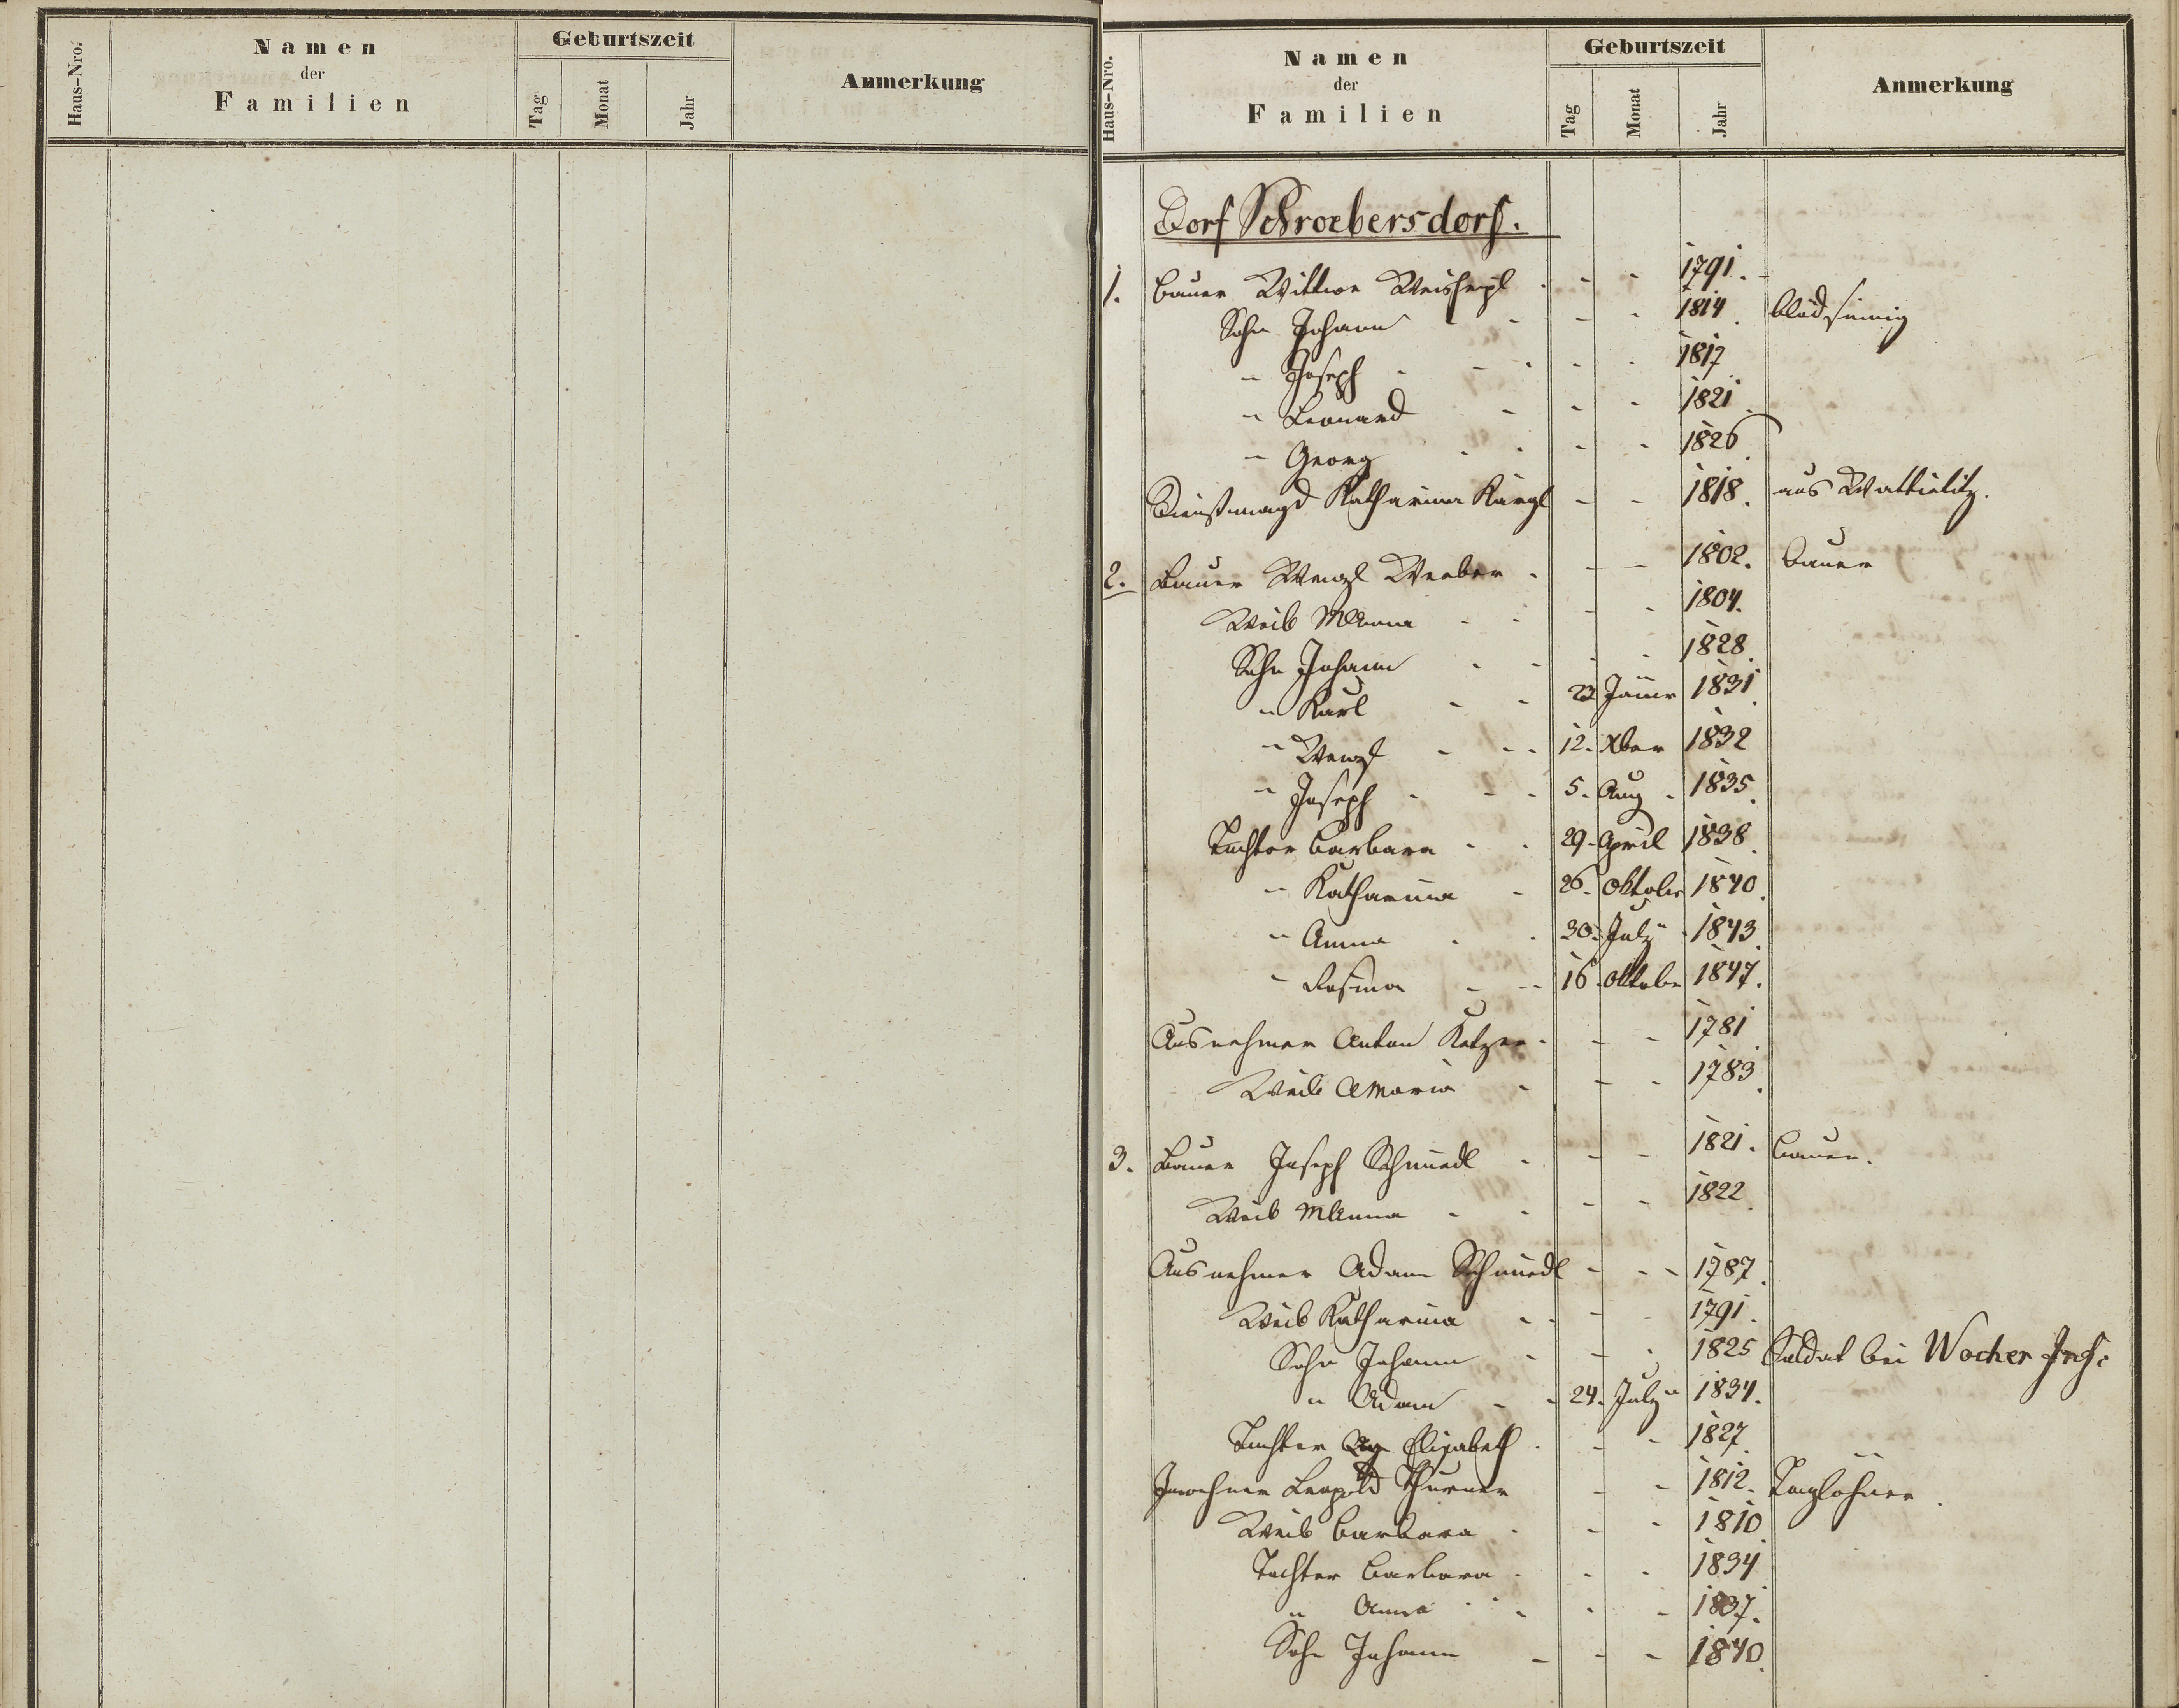 Haus-Nro.
Namen
der
Familien
Geburtszeit
Tag
Monat
Jahr
Anmerkung
Haus-Nro.
Namen
der
Familien
Geburtszeit
Tag
Monat
Jahr
Anmerkung
Dorf Schroebersdorf.
1. Bauer Wittwe Weisheipl - - 1791.
Sohn Johann - - - - 1814. blödsinnig
" Joseph - - - - 1817
" Leonard - - - 1821.
" Georg - - 1826.
Dienstmagd Katharina - - 1818. aus
2. Bauer Wenzl Weeber - - - 1802. Bauer
Weib MAnna - - - - 1804.
Sohn Johann - - - - 1828.
" Karl - - 23 Jäner 1831.
" Wenzl - - - 12. Xber 1832
" Joseph - - - 5. Aug. 1835.
Tochter Barbara - - 29. April 1838.
" Katharina - 26. Oktober 1840.
" Anna - - 30. July 1843.
" Rosina - - 16. Oktober 1847.
Ausnehmer Anton Katzer - - - 1781
Weib AMaria - - - 1783.
3. Bauer Joseph Schmiedl - - - 1821. Bauer.
Weib MAnna - - - - 1822.
Ausnehmer Adam Schmiedl - - - 1787.
Weib Katharina - - - - 1791.
Sohn Johann - - - 1825 Soldat bei Wocher Inf:
" Adam - - 24. July 1834.
Tochter Elisabeth - - - 1827.
Inwohner Leopold Thurner - - 1812. Taglöhner.
Weib Barbara - - - 1810
Tochter Barbara - - - 1834
" Anna - - - - 1837.
Sohn Johann - - - 1840.